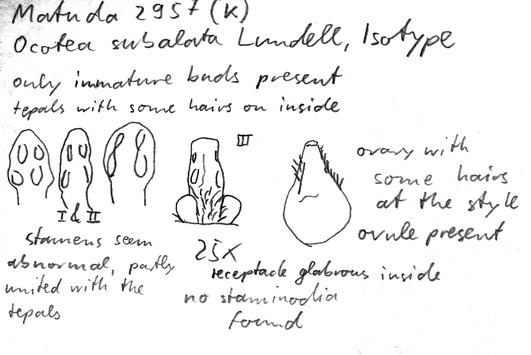 Matuda 2957 (K)
Ocotea subalata Lundell, Isotype
only immature buds present
tepals with some hairs on inside
I & II
III
25x
stamens seem
abnormal, partly
united with the
tepals
receptacle glabrous inside
no staminodia
found
ovary with
some hairs
at the style
ovule present